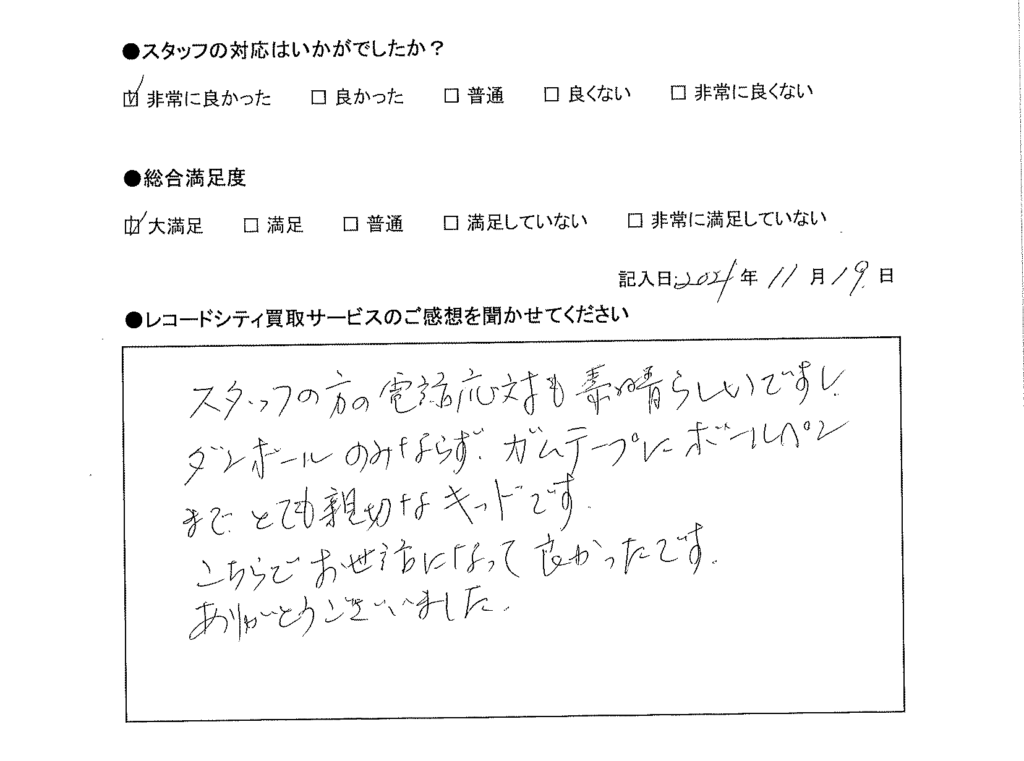 ●スタッフの対応はいかがでしたか？
☑ 非常に良かった □ 良かった □ 普通 □ 良くない □ 非常に良くない
●総合満足度
☑ 大満足 □ 満足 □ 普通 □ 満足していない □ 非常に満足していない
記入日:2021年 11月 19日
●レコードシティ買取サービスのご感想を聞かせてください
スタッフの方の電話応対も素晴らしいですし、
ダンボールのみならず、ガムテープにボールペン
まで、とても親切なキッドです。
こちらでお世話になって良かったです。
ありがとうございました。